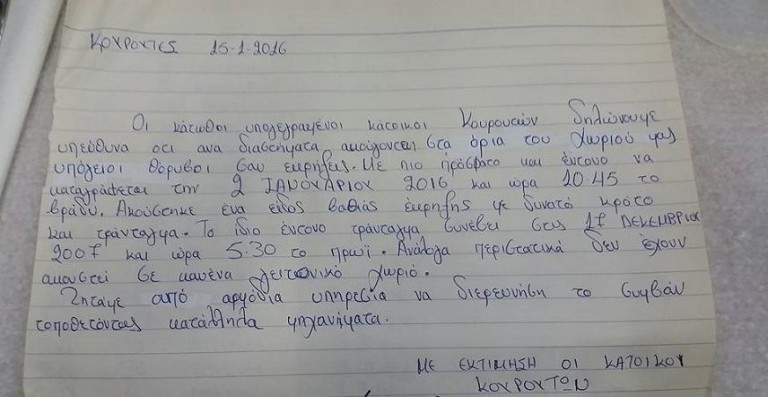 ΚΟΥΡΟΥΤΕΣ 15-1-2016
Οι κάτωθοι υπολεγραμένοι κάτοικοι Κουρουτών δηλώνουμε
υπεύθυνα οτι ανα διαστήματα ακούγονται στα όρια του χωριού μας
υπόγειοι θόρυβοι σαν εκρήξεις. Με πιο πρόσφατο και έντονο να
καταγράφεται την 2 ΙΑΝΟΥΑΡΙΟΥ 2016 και ώρα 20.45 το
βράδυ. Ακούστηκε ενα είδος βαθιάς έκρηξης με δυνατό κρότο
και τράνταγμα. Το ίδιο έντονο τράνταγμα συνέβει στις 17 ΔΕΚΕΜΒΡΙΟΥ
2007 και ώρα 5.30 το πρωί. Ανάλογα περιστατικά δεν έχουν
ακουστεί σε κανένα γειτονικό χωριό.
Ζητάμε από αρμόδια υπηρεσία να διερευνήση το συμβάν
τοποθετόντας κατάλληλα μηχανήματα.
ΜΕ ΕΚΤΙΜΗΣΗ ΟΙ ΚΑΤΟΙΚΟΥ
ΚΟΥΡΟΥΤΩΝ